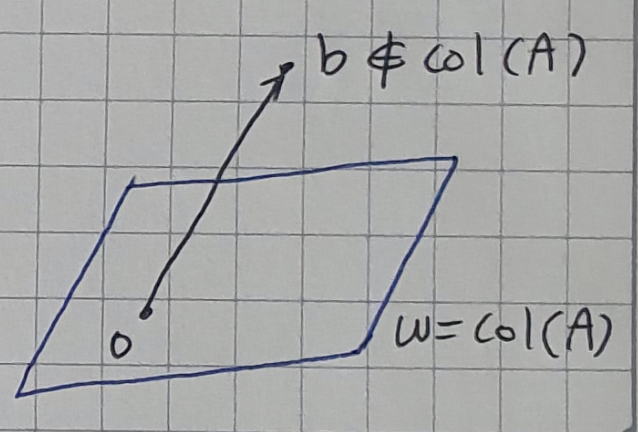 b ∉ col(A)
0
W=Col(A)